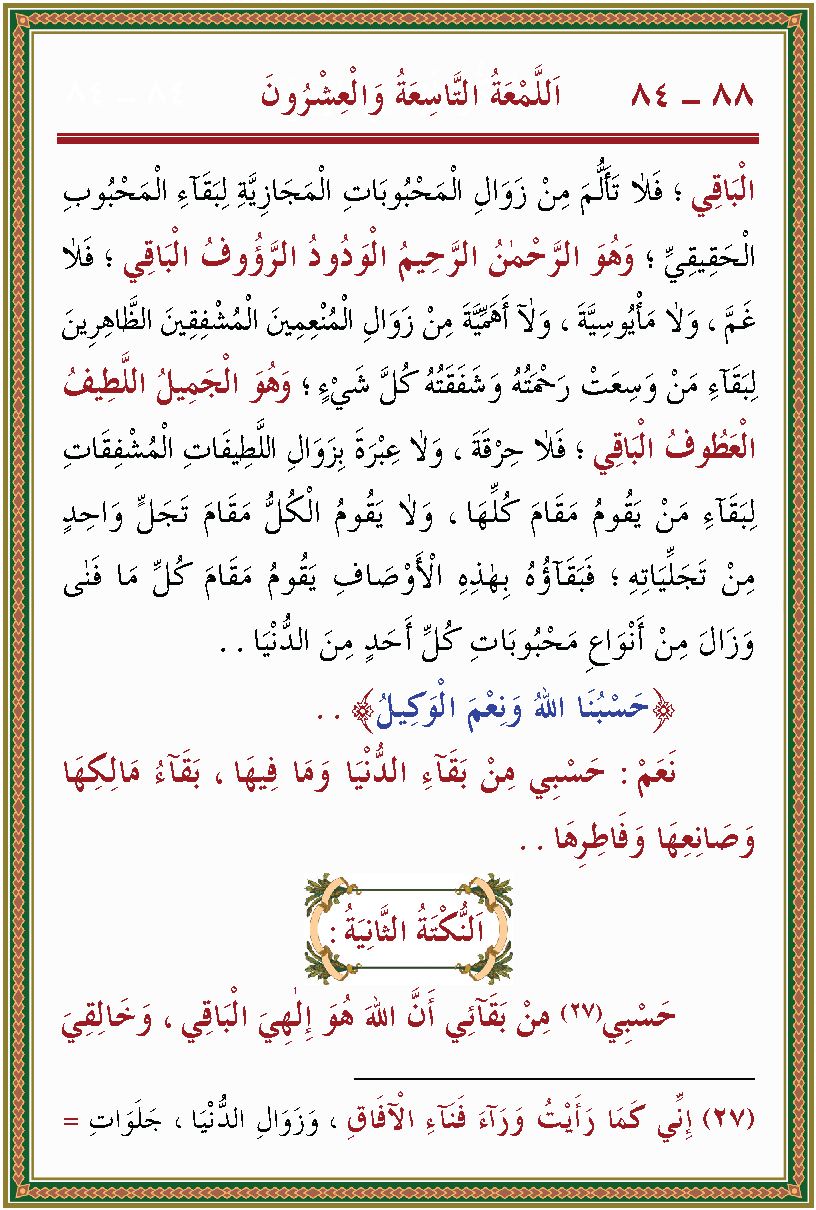 ٨٨ – ٨٤ اَللَّمْعَةُ التَّاسِعَةُ وَالْعِشْرُونَ
الْبَاقِي ؛ فَلاٰ تَأَلُّمَ مِنْ زَوَالِ الْمَحْبُوبَاتِ الْمَجَازِيَّةِ لِبَقَآءِ الْمَحْبُوبِ
الْحَقِيقِيِّ ؛ وَهُوَ الرَّحْمٰنُ الرَّحِيمُ الْوَدُودُ الرَّؤُوفُ الْبَاقِي ؛ فَلاٰ
غَمَّ ، وَلاٰ مَأْيُوسِيَّةَ ، وَلاٰ أَهَمِّيَّةَ مِنْ زَوَالِ الْمُنْعِمِينَ الْمُشْفِقِينَ الظَّاهِرِينَ
لِبَقَآءِ مَنْ وَسِعَتْ رَحْمَتُهُ وَشَفَقَتُهُ كُلَّ شَيْءٍ ؛ وَهُوَ الْجَمِيلُ اللَّطِيفُ
الْعَطُوفُ الْبَاقِي ؛ فَلاٰ حِرْقَةَ ، وَلاٰ عِبْرَةَ بِزَوَالِ اللَّطِيفَاتِ الْمُشْفِقَاتِ
لِبَقَآءِ مَنْ يَقُومُ مَقَامَ كُلِّهَا ، وَلاٰ يَقُومُ الْكُلُّ مَقَامَ تَجَلٍّ وَاحِدٍ
مِنْ تَجَلِّيَاتِهِ ؛ فَبَقَآؤُهُ بِهٰذِهِ الْأَوْصَافِ يَقُومُ مَقَامَ كُلِّ مَا فَنٰى
وَزَالَ مِنْ أَنْوَاعِ مَحْبُوبَاتِ كُلِّ أَحَدٍ مِنَ الدُّنْيَا . .
﴿حَسْبُنَا اللهُ وَنِعْمَ الْوَكِيلُ﴾ . .
نَعَمْ : حَسْبِي مِنْ بَقَآءِ الدُّنْيَا وَمَا فِيهَا ، بَقَآءُ مَالِكِهَا
وَصَانِعِهَا وَفَاطِرِهَا . .
اَلنُّكْتَةُ الثَّانِيَةُ :
حَسْبِي(٢٧) مِنْ بَقَآئِي أَنَّ اللهَ هُوَ إِلٰهِيَ الْبَاقِي ، وَخَالِقِيَ
(٢٧) إِنِّي كَمَا رَأَيْتُ وَرَآءَ فَنَآءِ الْآفَاقِ ، وَزَوَالِ الدُّنْيَا ، جَلَوَاتِ =